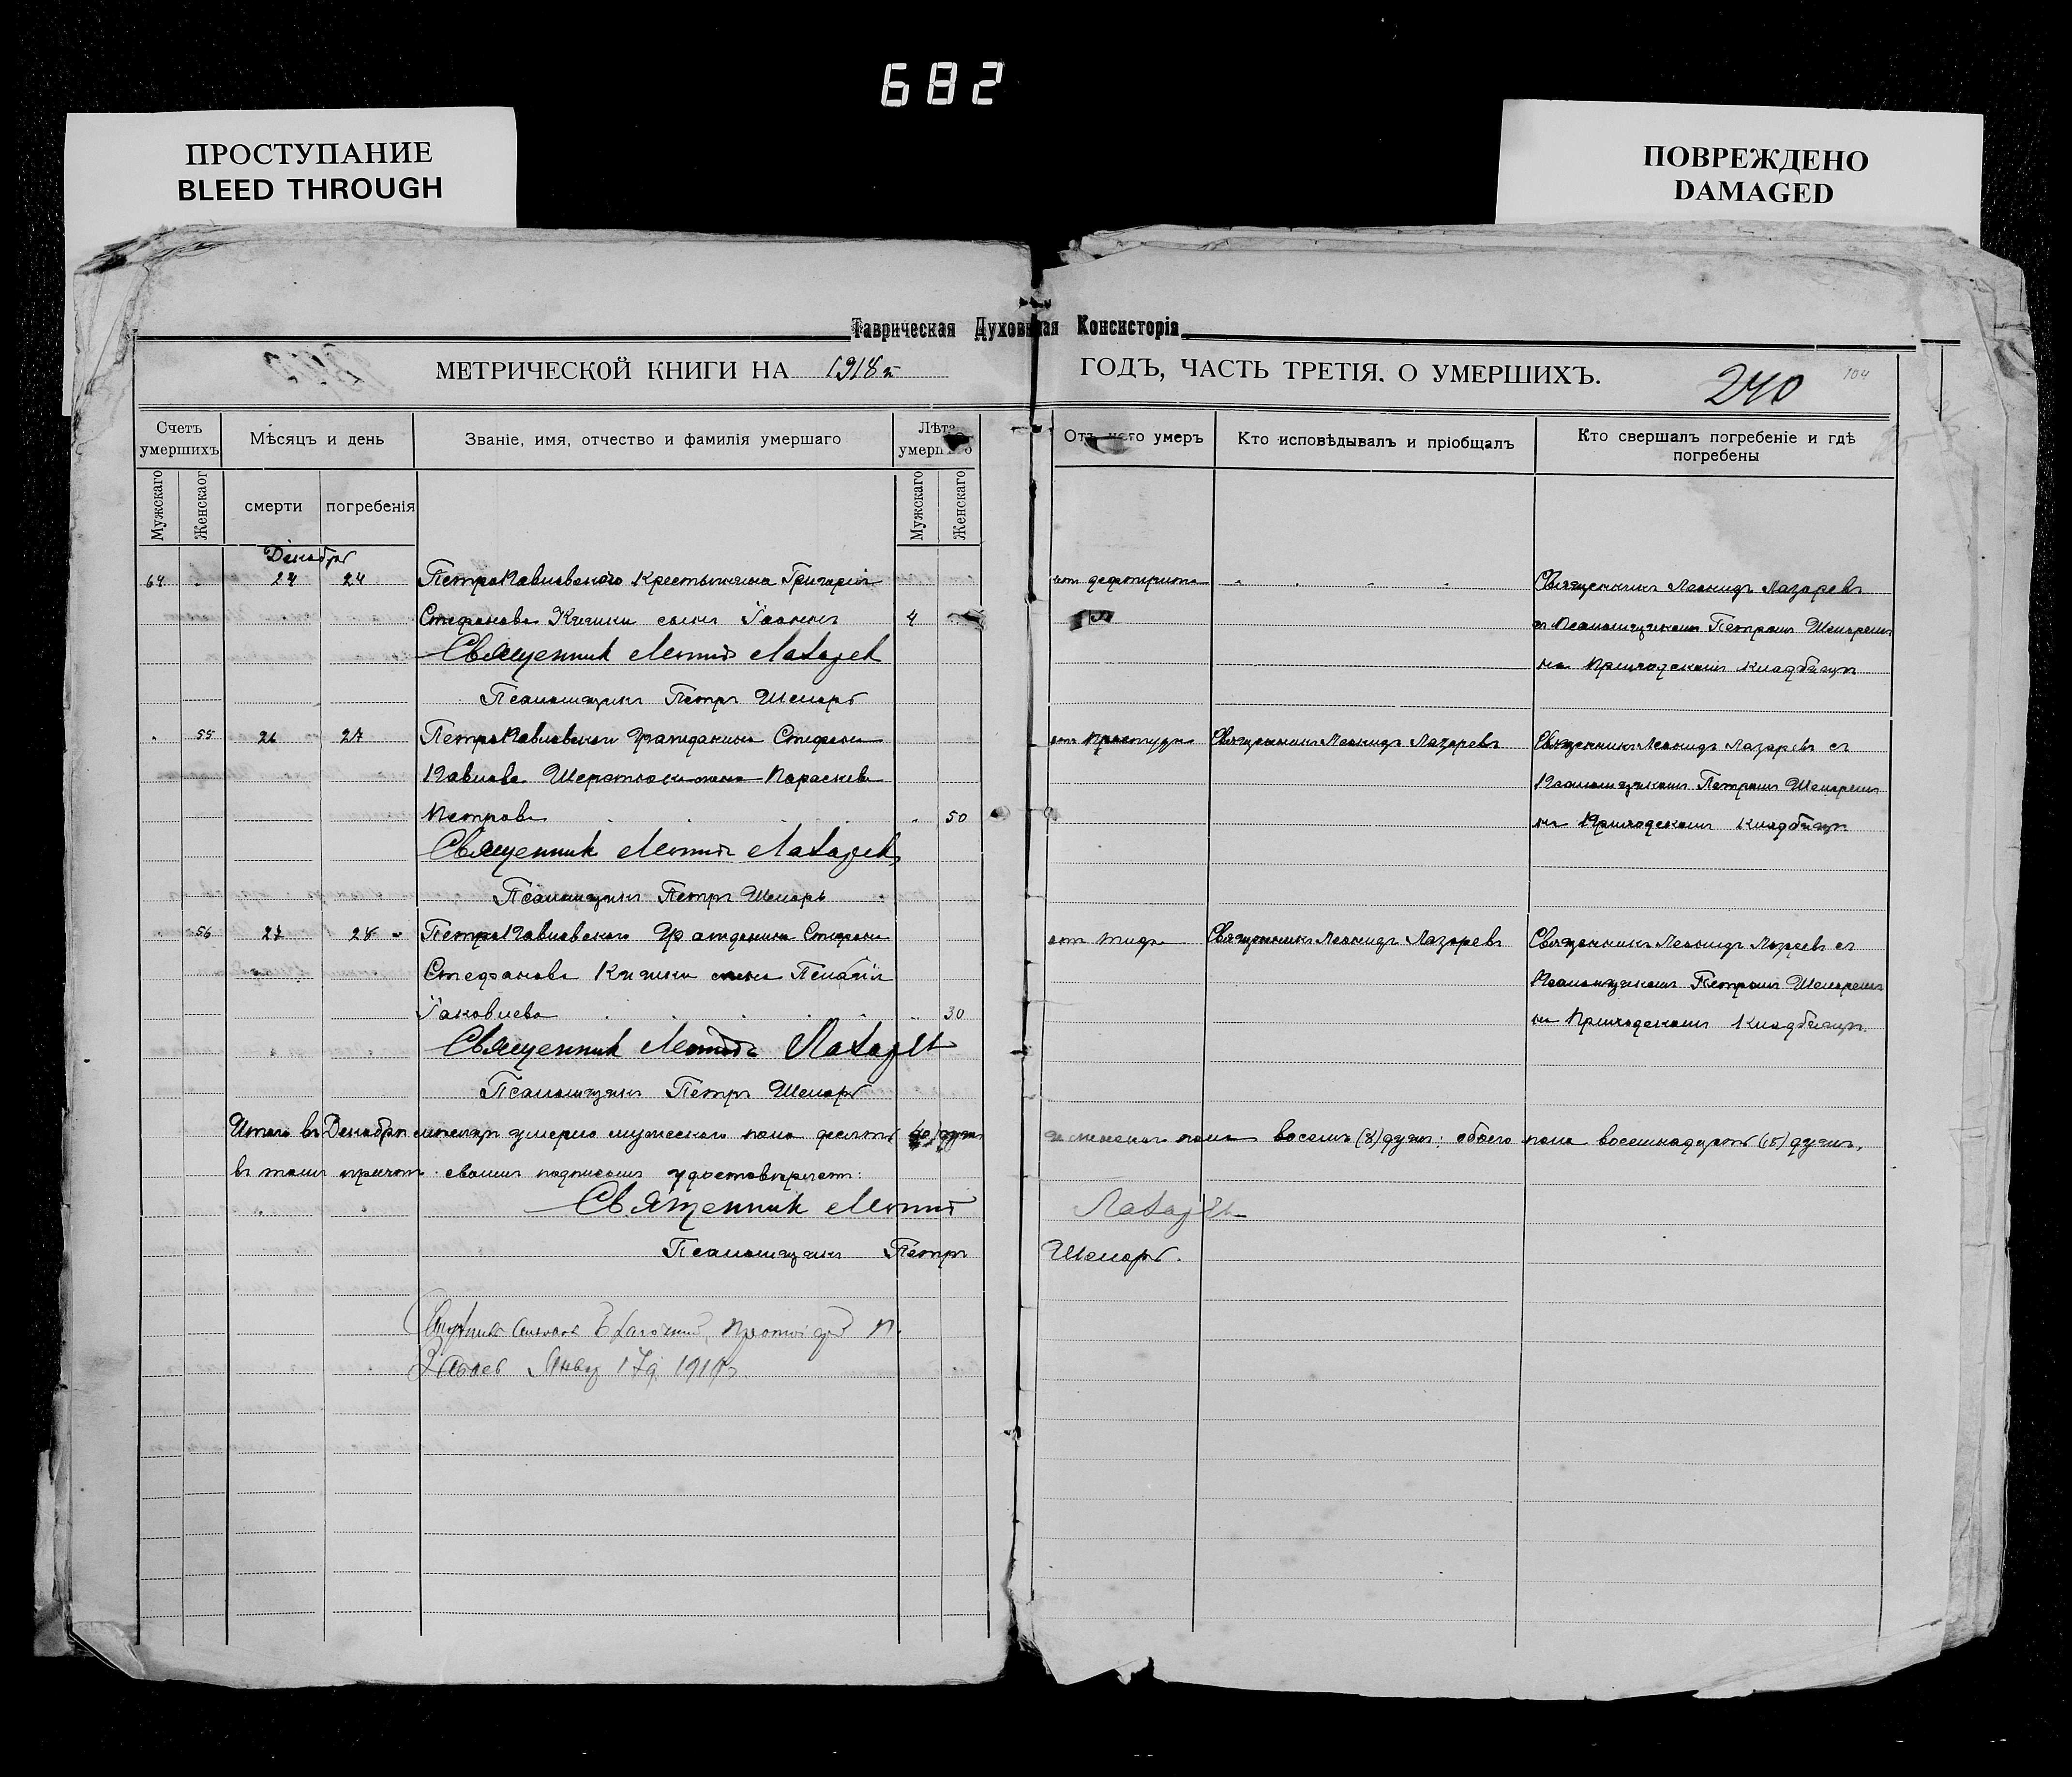 682
ПРОСТУПАНИЕ
BLEED THROUGH
ПОВРЕЖДЕНО
DAMAGED
Таврическая Духовная Консисторія
МЕТРИЧЕСКОЙ КНИГИ НА 1918 г. ГОДЪ, ЧАСТЬ ТРЕТІЯ. О УМЕРШИХЪ.
240
104
Счетъ умершихъ
Мѣсяцъ и день
Званіе, имя, отчество и фамилія умершаго
Лѣта умершаго
Отъ чего умеръ
Кто исповѣдывалъ и пріобщалъ
Кто свершалъ погребеніе и гдѣ погребены
Мужскаго
Женскаог
смерти
погребенія
Мужскаго
Женскаго
Декабрь
64 24 24 Петропавловскаго Крестьянина Григорія
Стефанова сынъ Іоаннъ 4
Священник Леонид Лазарев
Псаломщикъ Петръ Шемарь
от дефтерита
Священникъ Леонидъ Лазаревъ
съ Псаломщикомъ Петромъ Шемаремъ
на Приходскомъ Кладбищѣ
55 26 27 Петропавловскаго Гражданина Стефана
Павлова жена Параскева
Петрова 50
Священник Леонид Лазарев
Псаломщикъ Петръ Шемарь
от простуды
Священникъ Леонидъ Лазаревъ
Священникъ Леонидъ Лазаревъ съ
Псаломщикомъ Петромъ Шемаремъ
на Приходскомъ Кладбищѣ
56 27 28 Петропавловскаго Гражданина Стефана
Стефанова жена Пелагія
Іаковлева 30
Священник Леонидъ Лазарев
Псаломщикъ Петръ Шемарь
от тифа
Священникъ Леонидъ Лазаревъ
Священникъ Леонидъ Лазаревъ съ
Псаломщикомъ Петромъ Шемаремъ
на Приходскомъ Кладбищѣ
Итого въ Декабрѣ мѣсяцѣ умерло мужескаго пола десять (10) душъ женскаго пола восемь (8) душъ: обоего пола восемнадцать (18) душъ,
въ томъ причтъ своимъ подписомъ удостовѣряетъ:
Священник Леонид Лазарев
Псаломщикъ Петръ Шемарь.